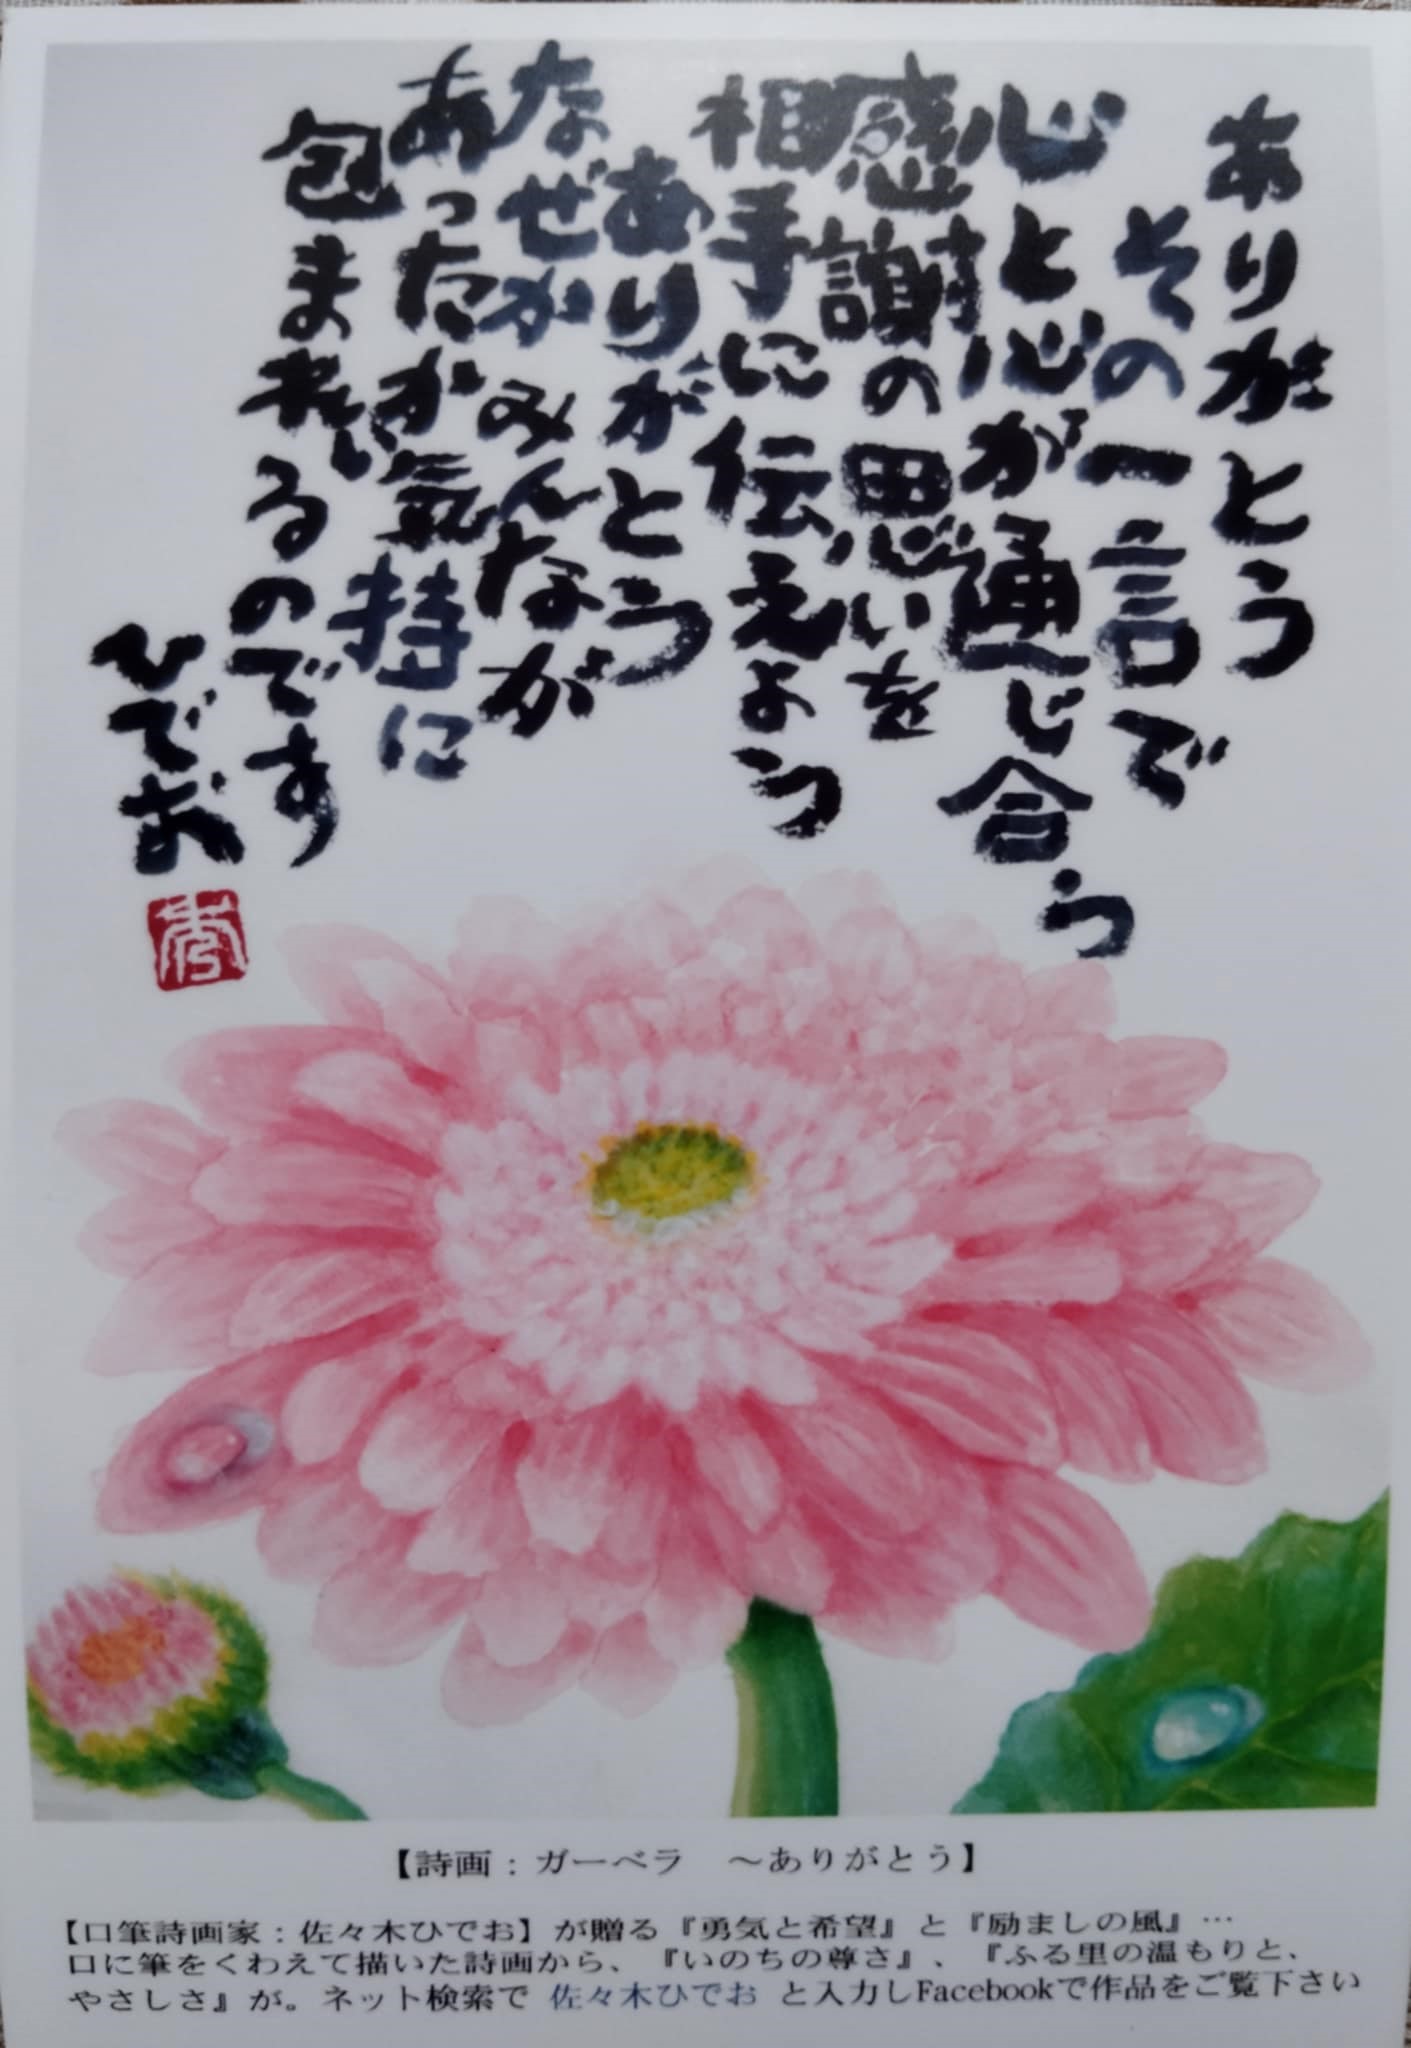 ありがとう
その一言で
心と心が通じ合う
感謝の思いを
相手に伝えよう
ありがとう
なぜか みんなが
あったかい気持に
包まれるのです
ひでお
秀
【詩画：ガーベラ ～ありがとう】
【口筆詩画家：佐々木ひでお】が贈る『勇気と希望』と『励ましの風』…
口に筆をくわえて描いた詩画から、『いのちの尊さ』、『ふる里の温もりと、
やさしさ』が。ネット検索で 佐々木ひでお と入力しFacebookで作品をご覧下さい